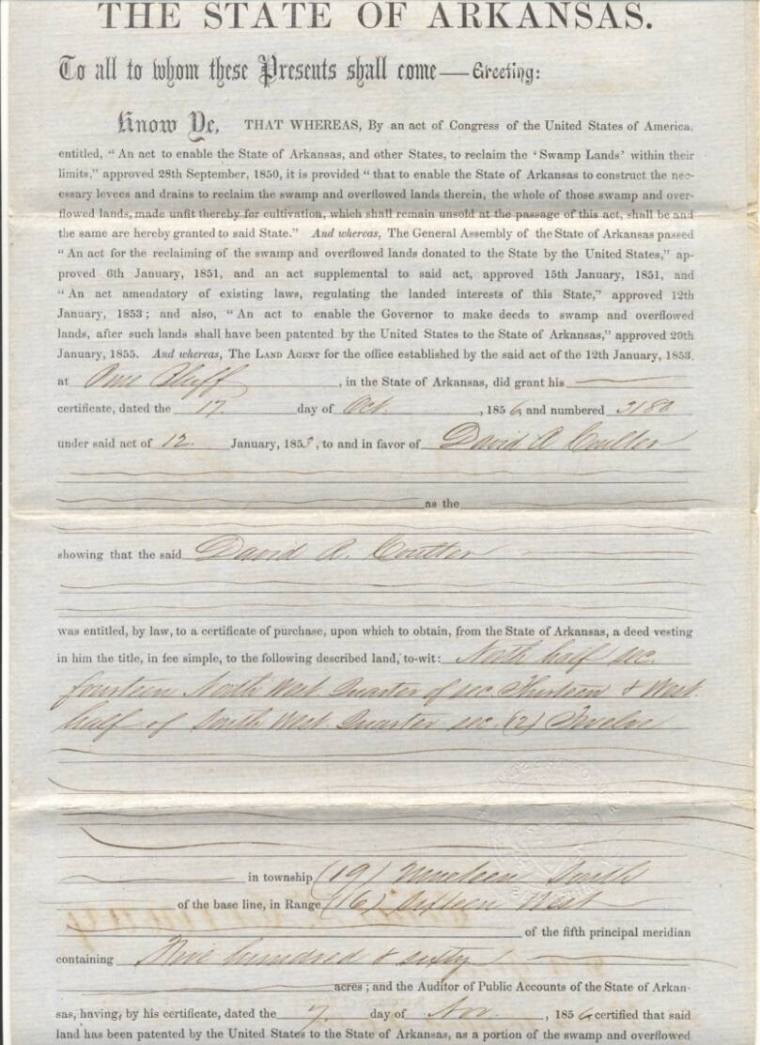 THE STATE OF ARKANSAS.
To all to whom these Presents shall come—Greeting:
Know Ye, THAT WHEREAS, By an act of Congress of the United States of America,
entitled, "An act to enable the State of Arkansas, and other States, to reclaim the 'Swamp Lands' within their
limits," approved 28th September, 1850, it is provided "that to enable the State of Arkansas to construct the nec-
essary levees and drains to reclaim the swamp and overflowed lands therein, the whole of those swamp and over-
flowed lands, made unfit thereby for cultivation, which shall remain unsold at the passage of this act, shall be and
the same are hereby granted to said State." And whereas, The General Assembly of the State of Arkansas passed
"An act for the reclaiming of the swamp and overflowed lands donated to the State by the United States," ap-
proved 6th January, 1851, and an act supplemental to said act, approved 15th January, 1851, and
"An act amendatory of existing laws, regulating the landed interests of this State," approved 12th
January, 1853; and also, "An act to enable the Governor to make deeds to swamp and overflowed
lands, after such lands shall have been patented by the United States to the State of Arkansas," approved 20th
January, 1855. And whereas, The LAND AGENT for the office established by the said act of the 12th January, 1853,
at Pine Bluff, in the State of Arkansas, did grant his
certificate, dated the 17 day of Oct., 1856 and numbered 3180
under said act of 12 January, 1853, to and in favor of David A Coulter
as the
showing that the said David A. Coulter
was entitled, by law, to a certificate of purchase, upon which to obtain, from the State of Arkansas, a deed vesting
in him the title, in fee simple, to the following described land, to-wit: North half sec.
fourteen North West Quarter of sec Thirteen & West
half of South West Quarter sec (2) Twelve
in township (19) Nineteen South
of the base line, in Range (16) Sixteen West
of the fifth principal meridian
containing Five hundred & sixty
acres; and the Auditor of Public Accounts of the State of Arkan-
sas, having, by his certificate, dated the 7 day of Nov., 1856 certified that said
land has been patented by the United States to the State of Arkansas, as a portion of the swamp and overflowed